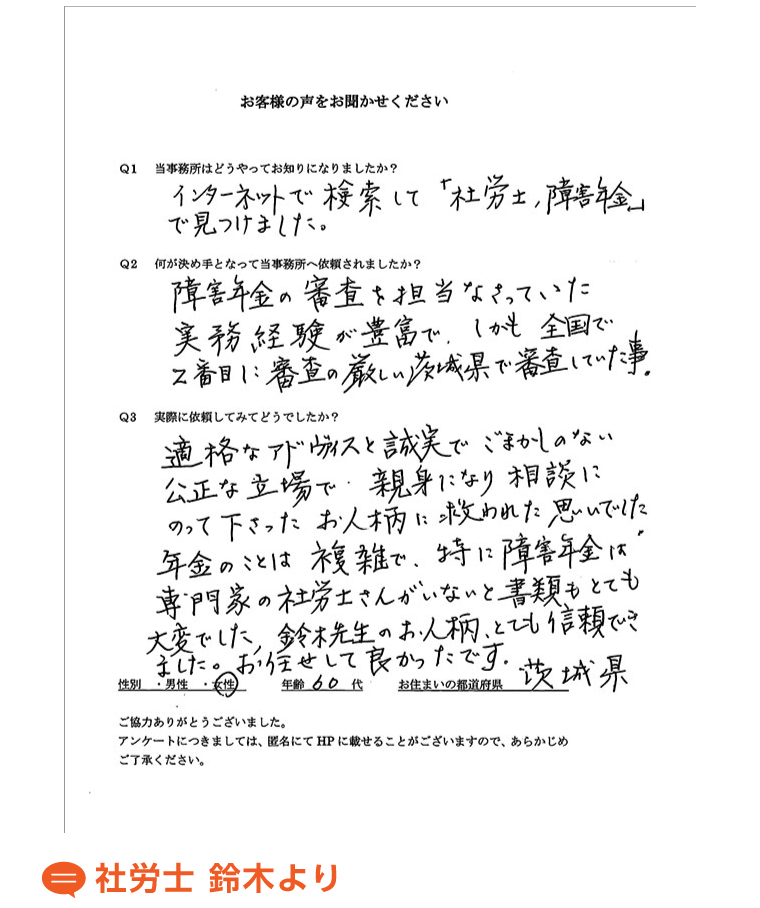 お客様の声をお聞かせください
Q1 当事務所はどうやってお知りになりましたか？
インターネットで検索して「社労士,障害年金」
で見つけました。
Q2 何が決め手となって当事務所へ依頼されましたか？
障害年金の審査を担当なさっていた
実務経験が豊富で、しかも全国で
2番目に審査の厳しい茨城県で審査していた事。
Q3 実際に依頼してみてどうでしたか？
適格なアドヴァイスと誠実でごまかしのない
公正な立場で、親身になり相談に
のって下さったお人柄に救われた思いでした
年金のことは複雑で、特に障害年金は
専門家の社労士さんがいないと書類もとても
大変でした、鈴木先生のお人柄、とても信頼でき
ました。お任せして良かったです。
性別 ・男性 ・女性 年齢 60 代 お住まいの都道府県 茨城県
ご協力ありがとうございました。
アンケートにつきましては、匿名にてHPに載せることがございますので、あらかじめ
ご了承ください。
社労士 鈴木より